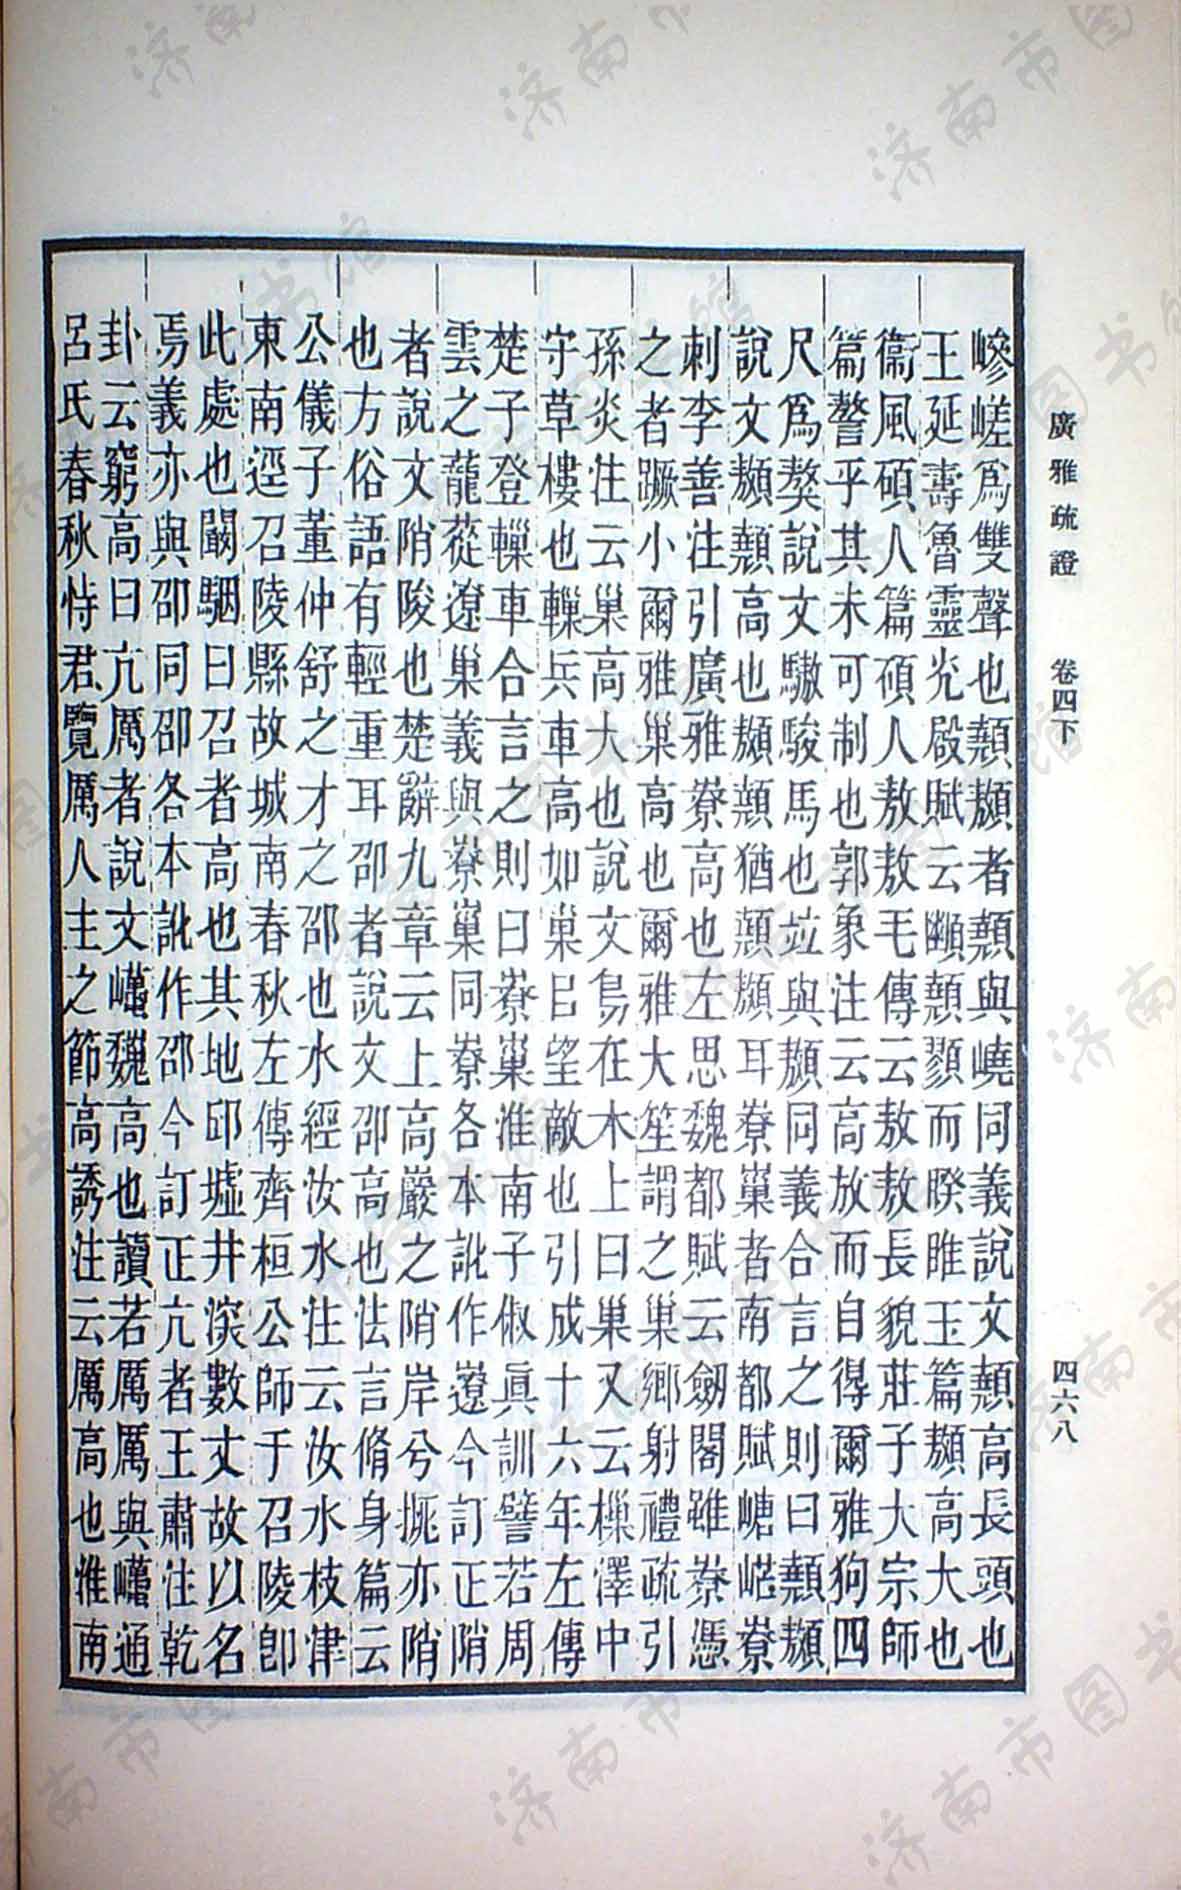 廣雅疏證 卷四下 四六八
嵾嵯爲雙聲也顤䫨者顤與嶢同義說文顤高長頭也
王延壽魯靈光殿賦云顤顟而睽睢玉篇䫨高大也
衞風碩人篇碩人敖敖毛傳云敖敖長貌莊子大宗師
篇謷乎其未可制也郭象注云高放而自得爾雅狗四
尺爲獒說文驐駿馬也竝與䫨同義合言之則曰顤䫨
說文䫨顤高也䫨顤猶顤䫨耳嶚巢者南都賦嵣㟐嶚
刺李善注引廣雅嶚高也左思魏都賦云劒閣雖嶚憑
之者蹶小爾雅巢高也爾雅大笙謂之巢鄉射禮疏引
孫炎注云巢高大也說文鳥在木上曰巢又云樔澤中
守草樓也轈兵車高如巢㠯望敵也引成十六年左傳
楚子登轈車合言之則曰嶚巢淮南子俶眞訓譬若周
雲之蘢蓯遼巢義與嶚巢同嶚各本訛作遼今訂正陗
者說文陗陖也楚辭九章云上高巖之陗岸兮㧡亦陗
也方俗語有輕重耳卲者說文卲高也法言脩身篇云
公儀子董仲舒之才之邵也水經汝水注云汝水枝津
東南逕召陵縣故城南春秋左傳齊桓公師于召陵卽
此處也闞駰曰召者高也其地邱墟井深數丈故以名
焉義亦與卲同卲各本訛作邵今訂正亢者王肅注乾
卦云窮高曰亢厲者說文巁巍高也讀若厲厲與巁通
呂氏春秋恃君覽厲人主之節高誘注云厲高也淮南